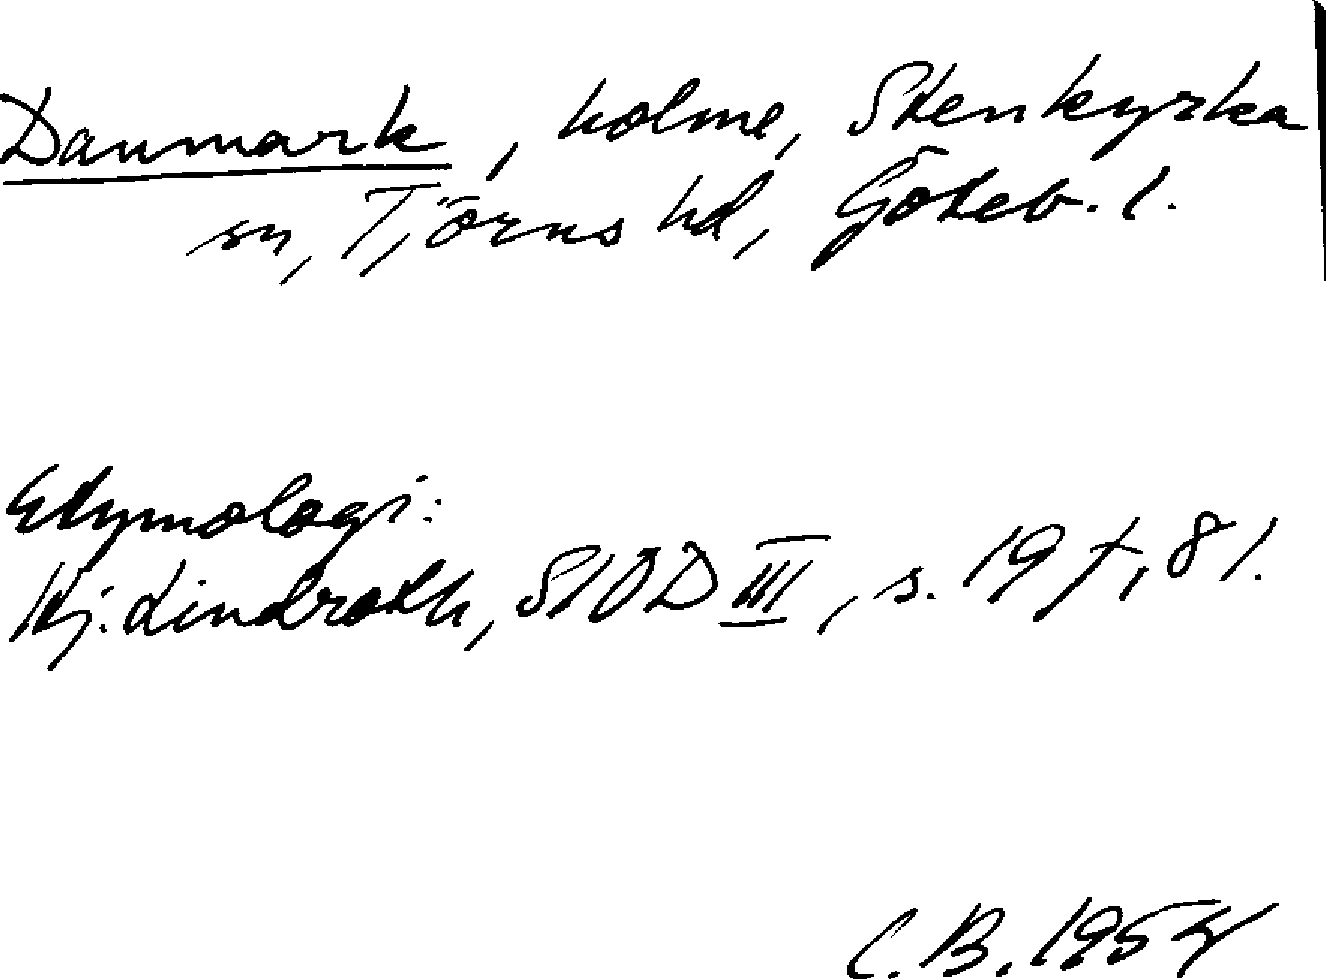 Danmark, holme, Stenkyrka
sn, Tjörns hd, Göteb. l.
Etymologi:
Hj. Lindroth, SIOD III, s. 19 f, 81.
C. B. 1954